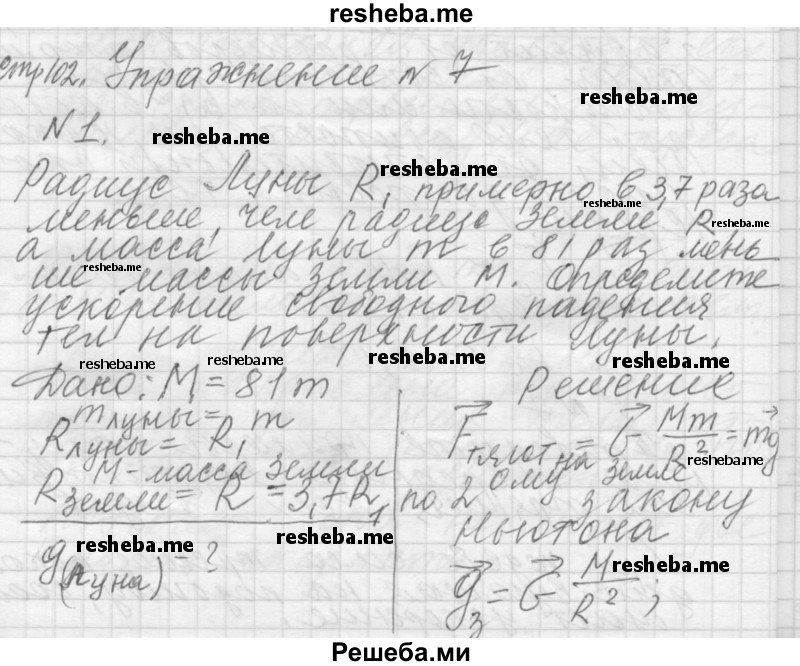 resheba.me
стр102. Упражнение № 7
resheba.me
№1. resheba.me
resheba.me
Радиус Луны R₁ примерно в 3,7 раза
resheba.me
меньше, чем радиус Земли R resheba.me
а масса Луны m в 81 раз мень
resheba.me
ше массы Земли M. Определите
ускорение свободного падения
тел на поверхности Луны.
resheba.me resheba.me resheba.me resheba.me
Дано: M = 81m
m луны = m
R луны = R₁
M - масса Земли
R земли = R = 3,7R₁
resheba.me resheba.me
g (луна) - ?
Решение
F⃗ тягот 
= G⃗ Mm/R² = mg⃗
resheba.me
на Земле
по 2 ому закону
Ньютона
resheba.me
g⃗з = G⃗ M/R² ;
Решеба.ми